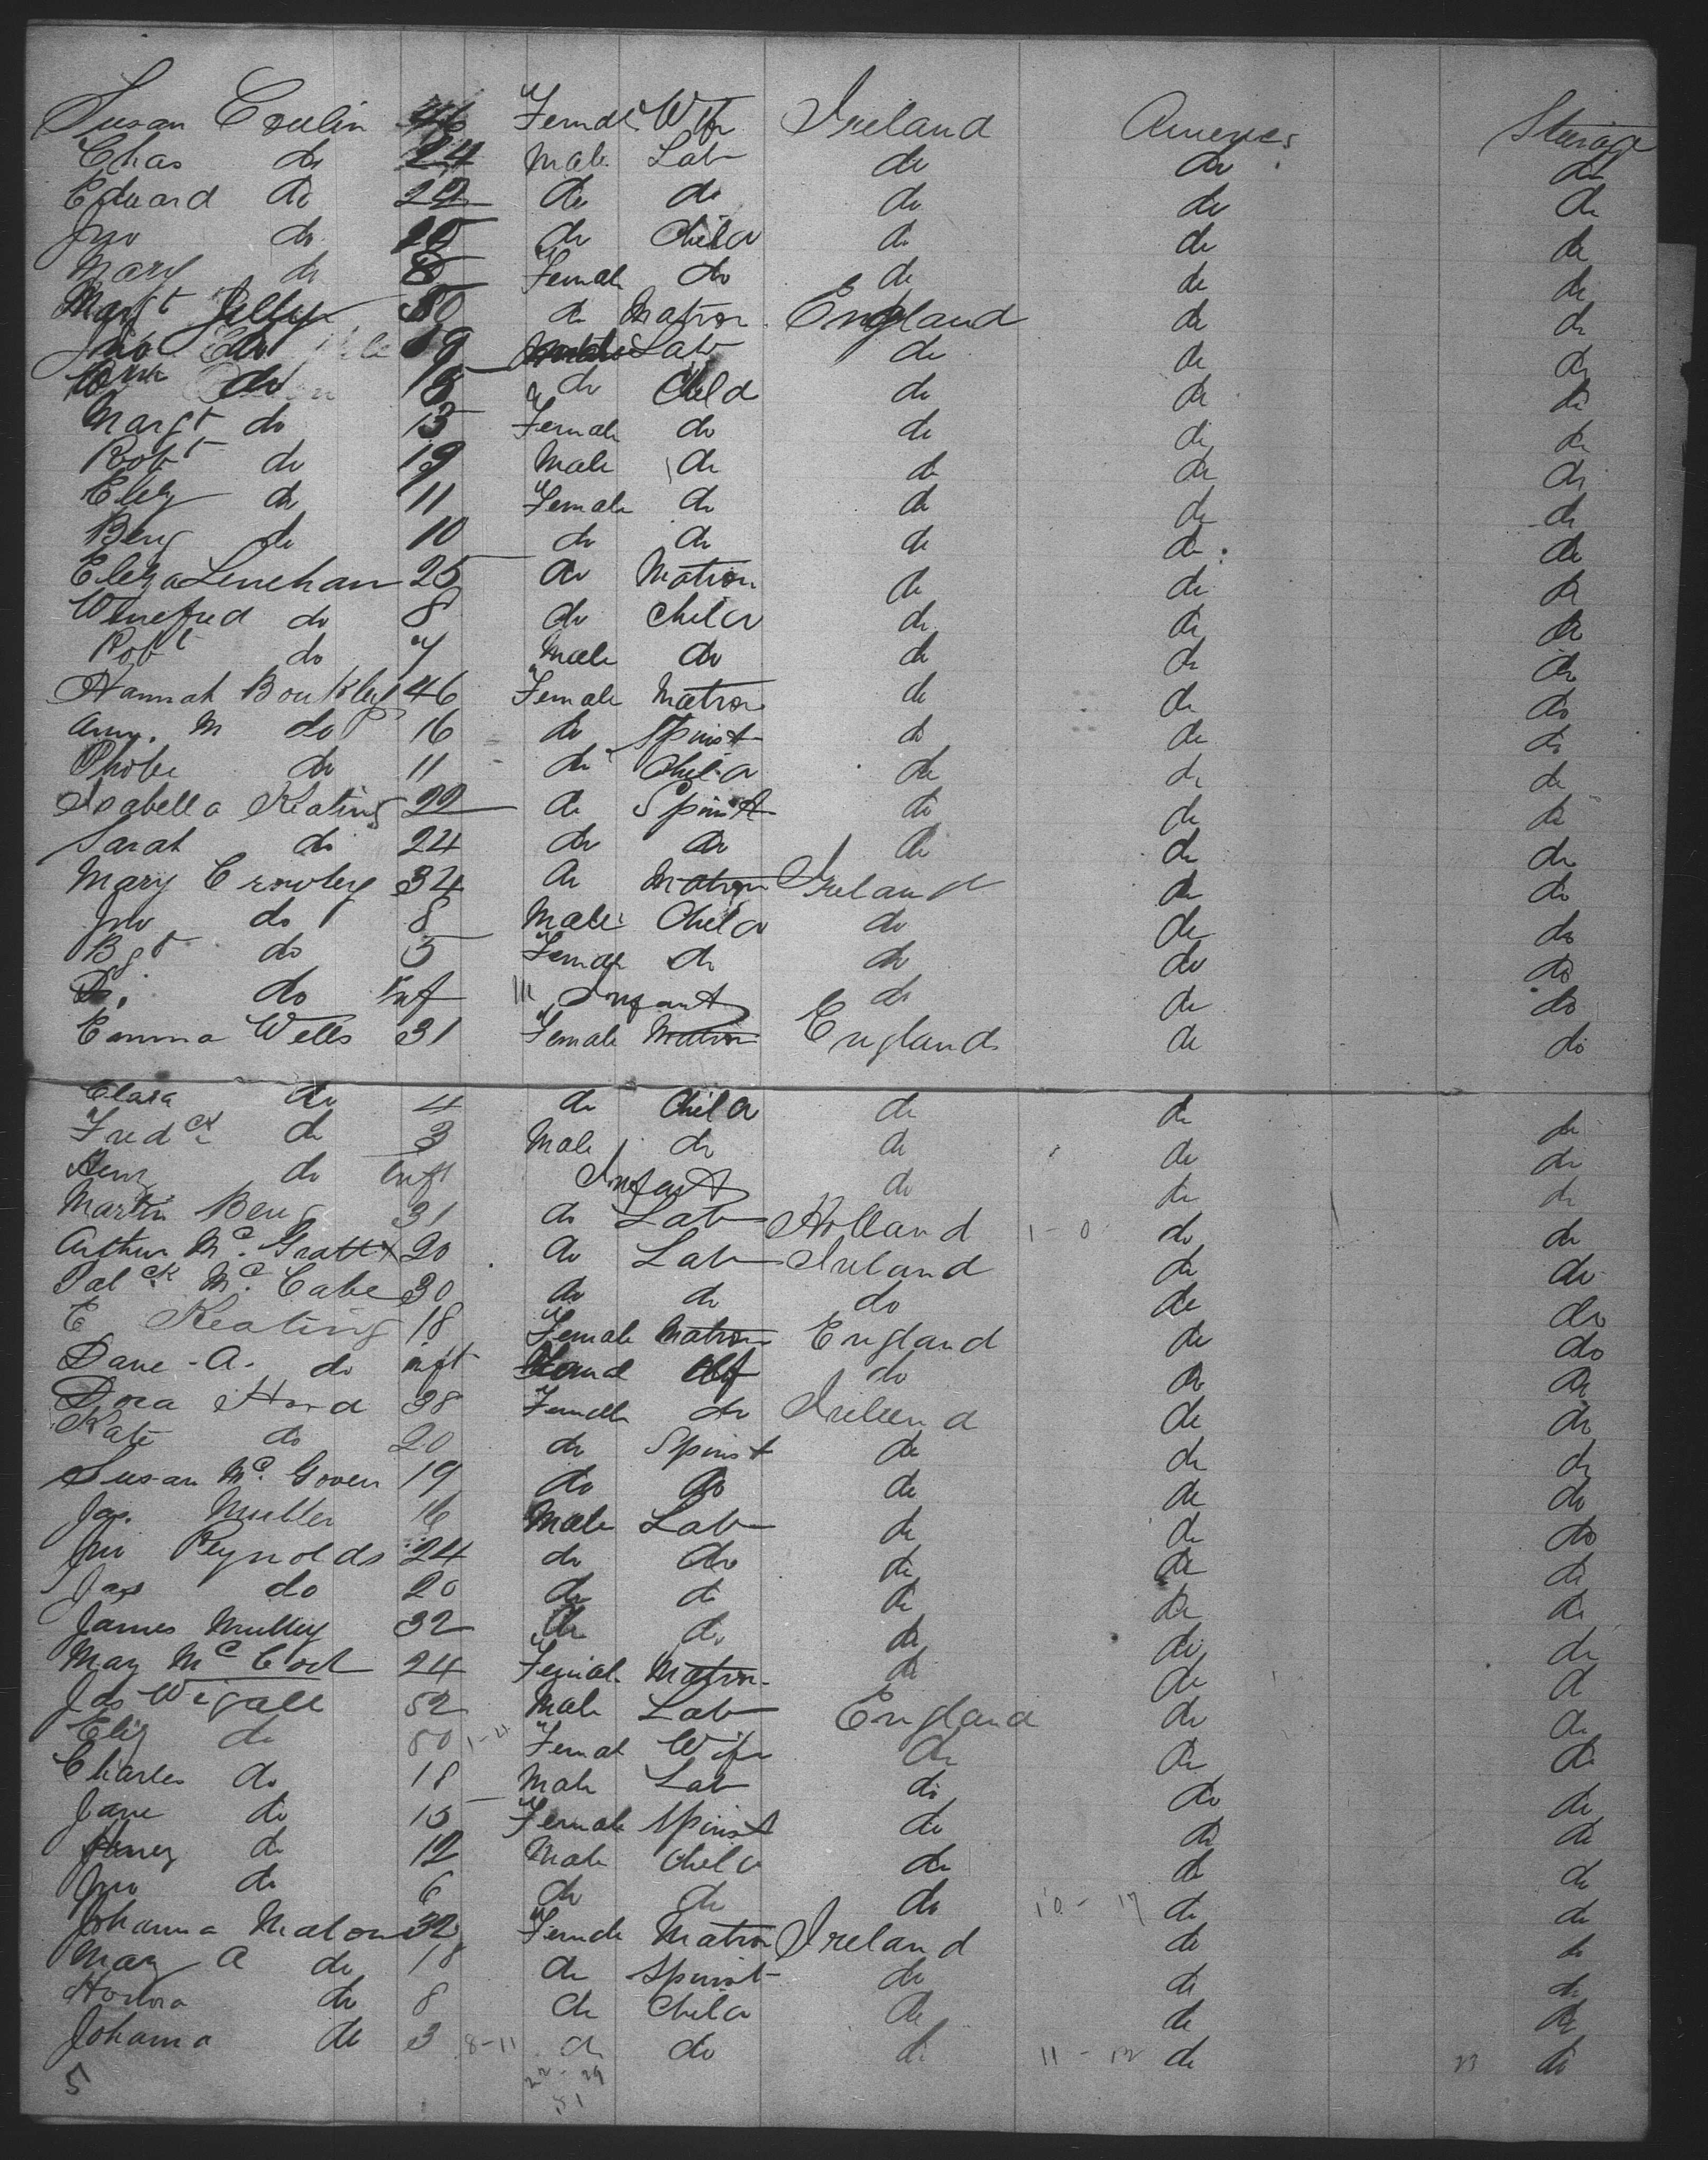 Susan Conlin 46 Female Wife Ireland America Steerage
Chas do 24 Male Lab do do do
Edward do 22 do do do do do
Jno do 20 do Child do do do
Mary do 8 Female do do do do
Margt Jelly 50 do Matron England do do
Jno do 19 Lab do do do
do do Child do do do
Margt do 13 Female do do do do
Robt do 19 Male do do do do
Eliz do 11 Female do do do do
Benj do 10 do do do do do
Eliza Linehan 25 do Matron do do do
Winefred do 8 do Child do do do
Robt do 7 Male do do do do
Hannah 46 Female Matron do do do
Ann. M do 16 do Spinst do do do
Phobe do 11 do Child do do do
Isabella Keating 22 do Spinst do do do
Sarah do 24 do do do do do
Mary Crowley 34 do Matron Ireland do do
Jno do 8 Male Child do do do
Bgt do 5 Female do do do do
do Inf Infant do do do
Emma Wells 31 Female Matron England do do
Clara do 4 do Child do do do
Fredck do 3 Male do do do do
Henry do Inft Infant do do do
Martin Beng 31 do Lab Holland 1-0 do do
Arthur Mc. Gratty 20 do Lab Ireland do do
Patck Mc. Cabe 30 do do do do do
E Keating 18 Female Matron England do do
Dave - A. do inft do do do
Dora Hord 38 Female do Ireland do do
Kate do 20 do Spinst do do do
Susan Mc. Goven 19 do do do do do
Jas. Muller 16 Male Lab do do do
Jno Reynolds 24 do do do do do
Jas do 20 do do do do do
James Mulley 32 do do do do do
Mary Mc 24 Female Matron do do do
Jas Wigall 52 Male Lab England do do
Eliz do 50 1-4 Femal Wife do do do
Charles do 18 Male Lab do do do
Jane do 15 Female Spinst do do do
Henry do 12 Male Child do do do
Jno do 6 do do do 10-17 do do
Johanna Malon 32 Female Matron Ireland do do
Mary A do 18 do Spinst do do do
Honora do 8 do Child do do do
Johanna do 3 8-11 do do do 11-12 do 23 do
5 22-29
51